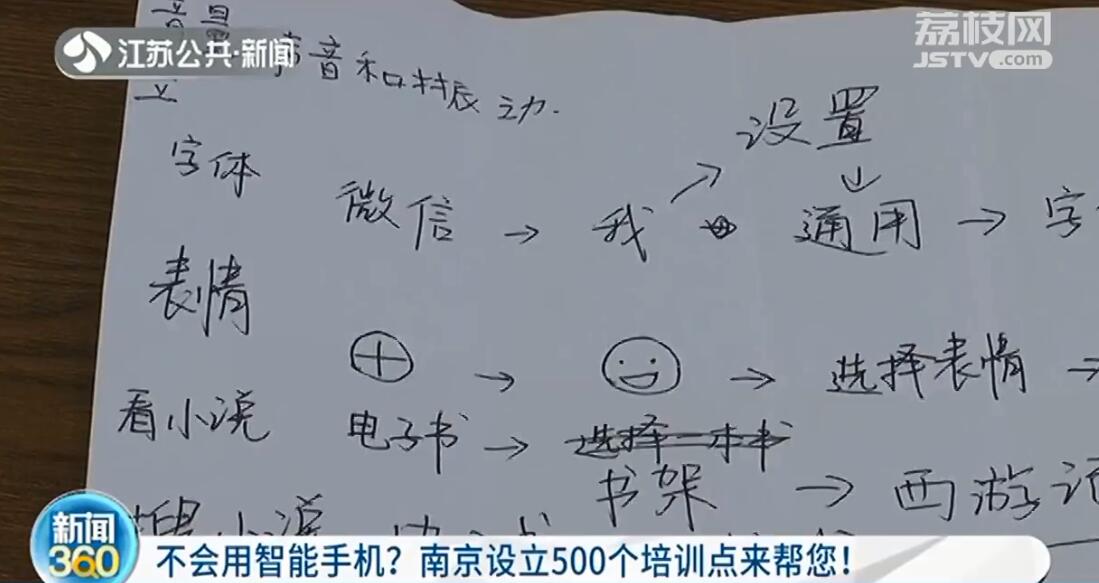 音量
江苏公共·新闻
荔枝网
JSTV.com
声音和振动.
设置
字体
微信 → 我 通用 → 字
表情
⊕ → → 选择表情 →
看小说 电子书 → 选择一本书
书架 → 西游记
搜小说
新闻
360
不会用智能手机？南京设立500个培训点来帮您！